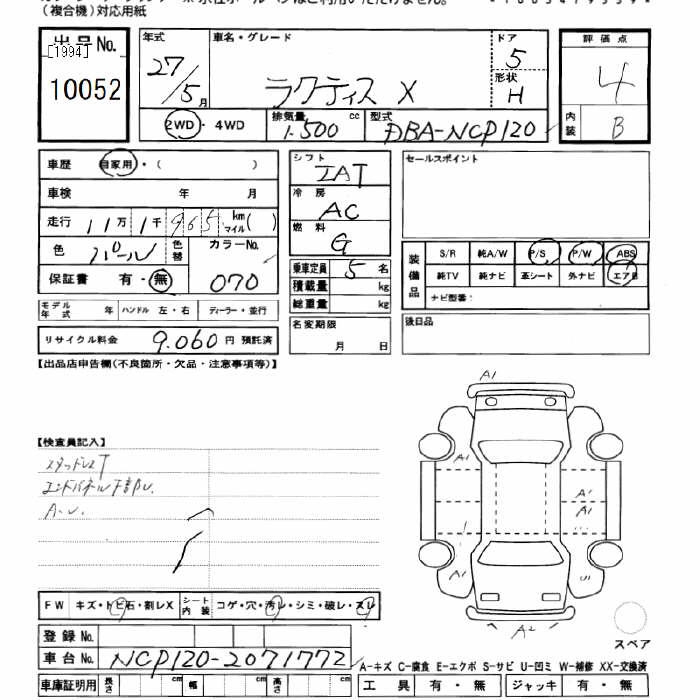 (複合機)対応用紙
出品No.
[1994]
10052
年式 27/5月
車名・グレード ラクティス X
ドア 5
形状 H
評価点 4
内装 B
2WD・4WD
排気量 1.500 cc
型式 DBA-NCP120
車歴 自家用・( )
車検 年 月
走行 11万1千965 km マイル( )
色 パール 色替
カラーNo. 070
保証書 有・無
モデル年式 年 ハンドル 左・右 ディーラー・並行
リサイクル料金 9.060円 預託済
シフト IAT
冷房 AC
燃料 G
乗車定員 5 名
積載量 kg
総重量 kg
名変期限 月 日
セールスポイント
装備品 S/R 純A/W P/S P/W ABS
純TV 純ナビ 革シート 外ナビ エアB
ナビ型番:
後日品
【出品店申告欄(不良箇所・欠品・注意事項等)】
【検査員記入】
スタッドレスT
エンドパネル下部U.
A-U.
A1
A1
A1
A1
A1
U
A2
スペア
FW キズ・トビ石・割レX シート内装 コゲ・穴・汚レ・シミ・破レ・スレ
登録No.
車台No. NCP120-2071772
A-キズ C-腐食 E-エクボ S-サビ U-凹ミ W-補修 XX-交換済
車庫証明用 長さ cm 幅 cm 高さ cm
工具 有・無 ジャッキ 有・無